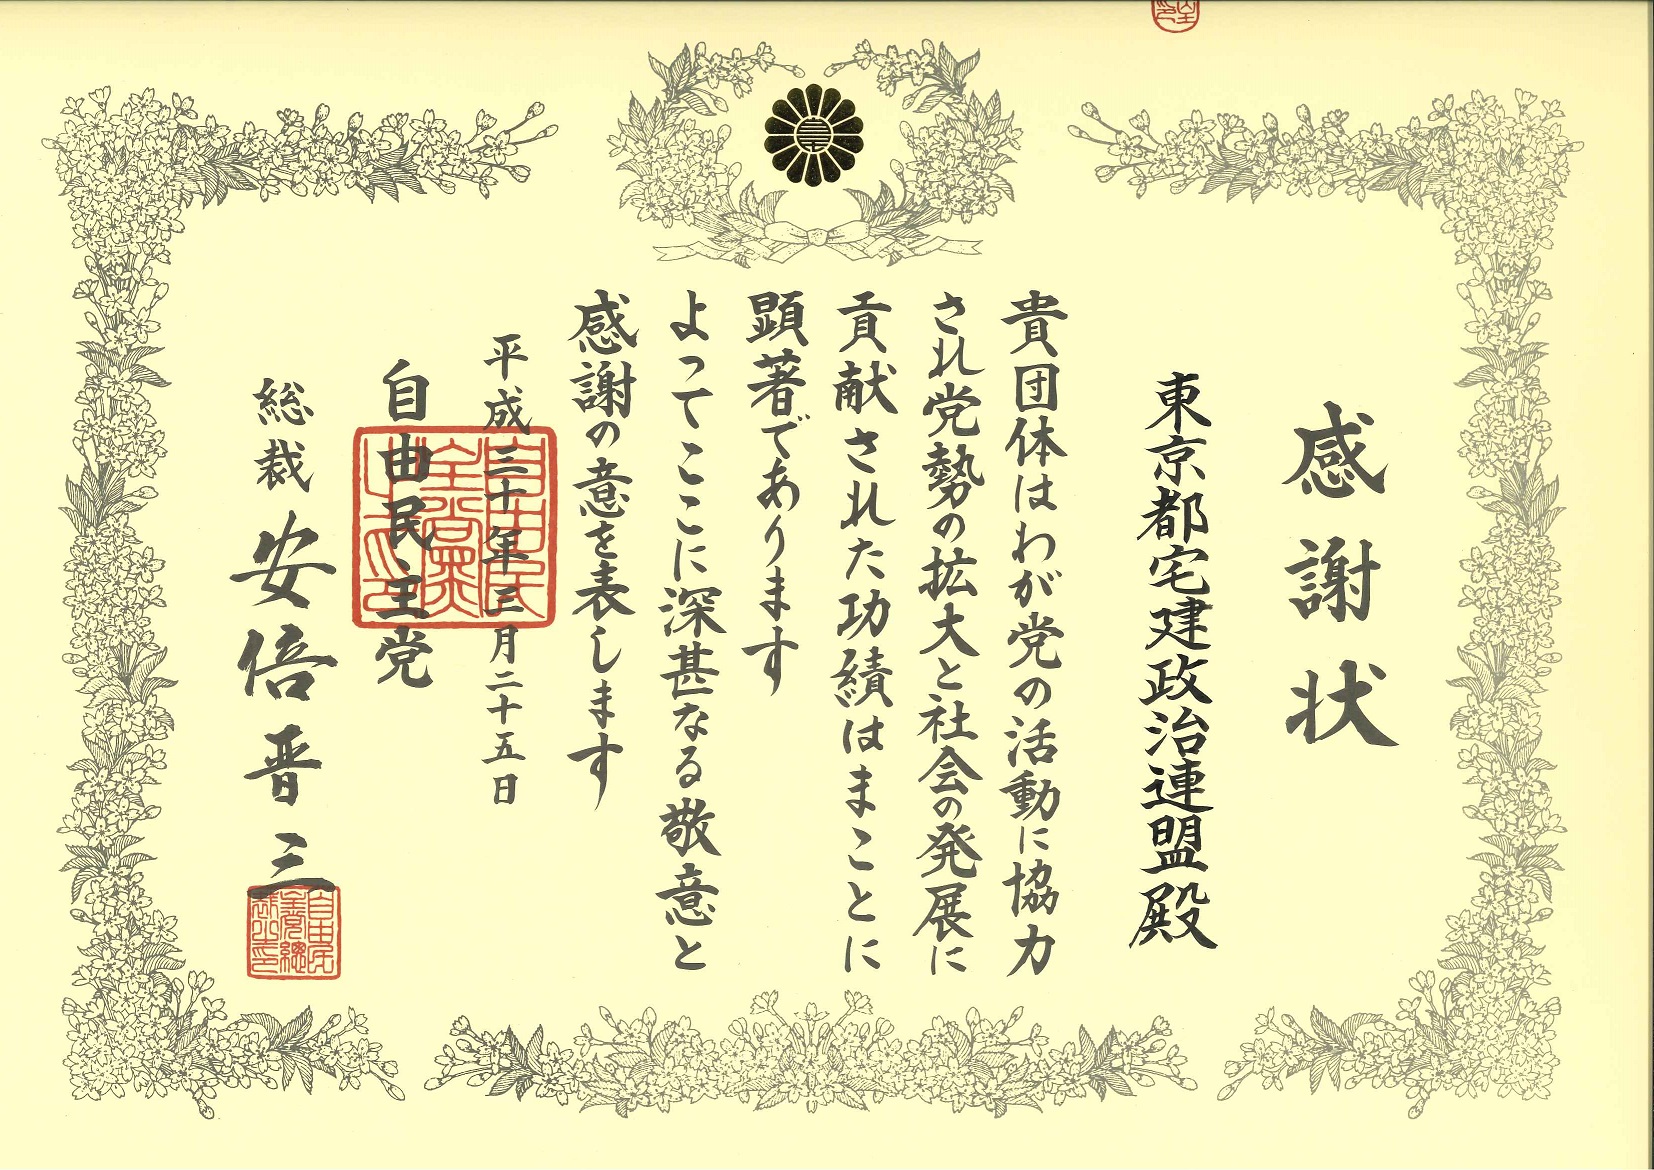 感謝状
東京都宅建政治連盟殿
貴団体はわが党の活動に協力
され党勢の拡大と社会の発展に
貢献された功績はまことに
顕著であります
よってここに深甚なる敬意と
感謝の意を表します
平成三十年三月二十五日
自由民主党
総裁 安倍晋三